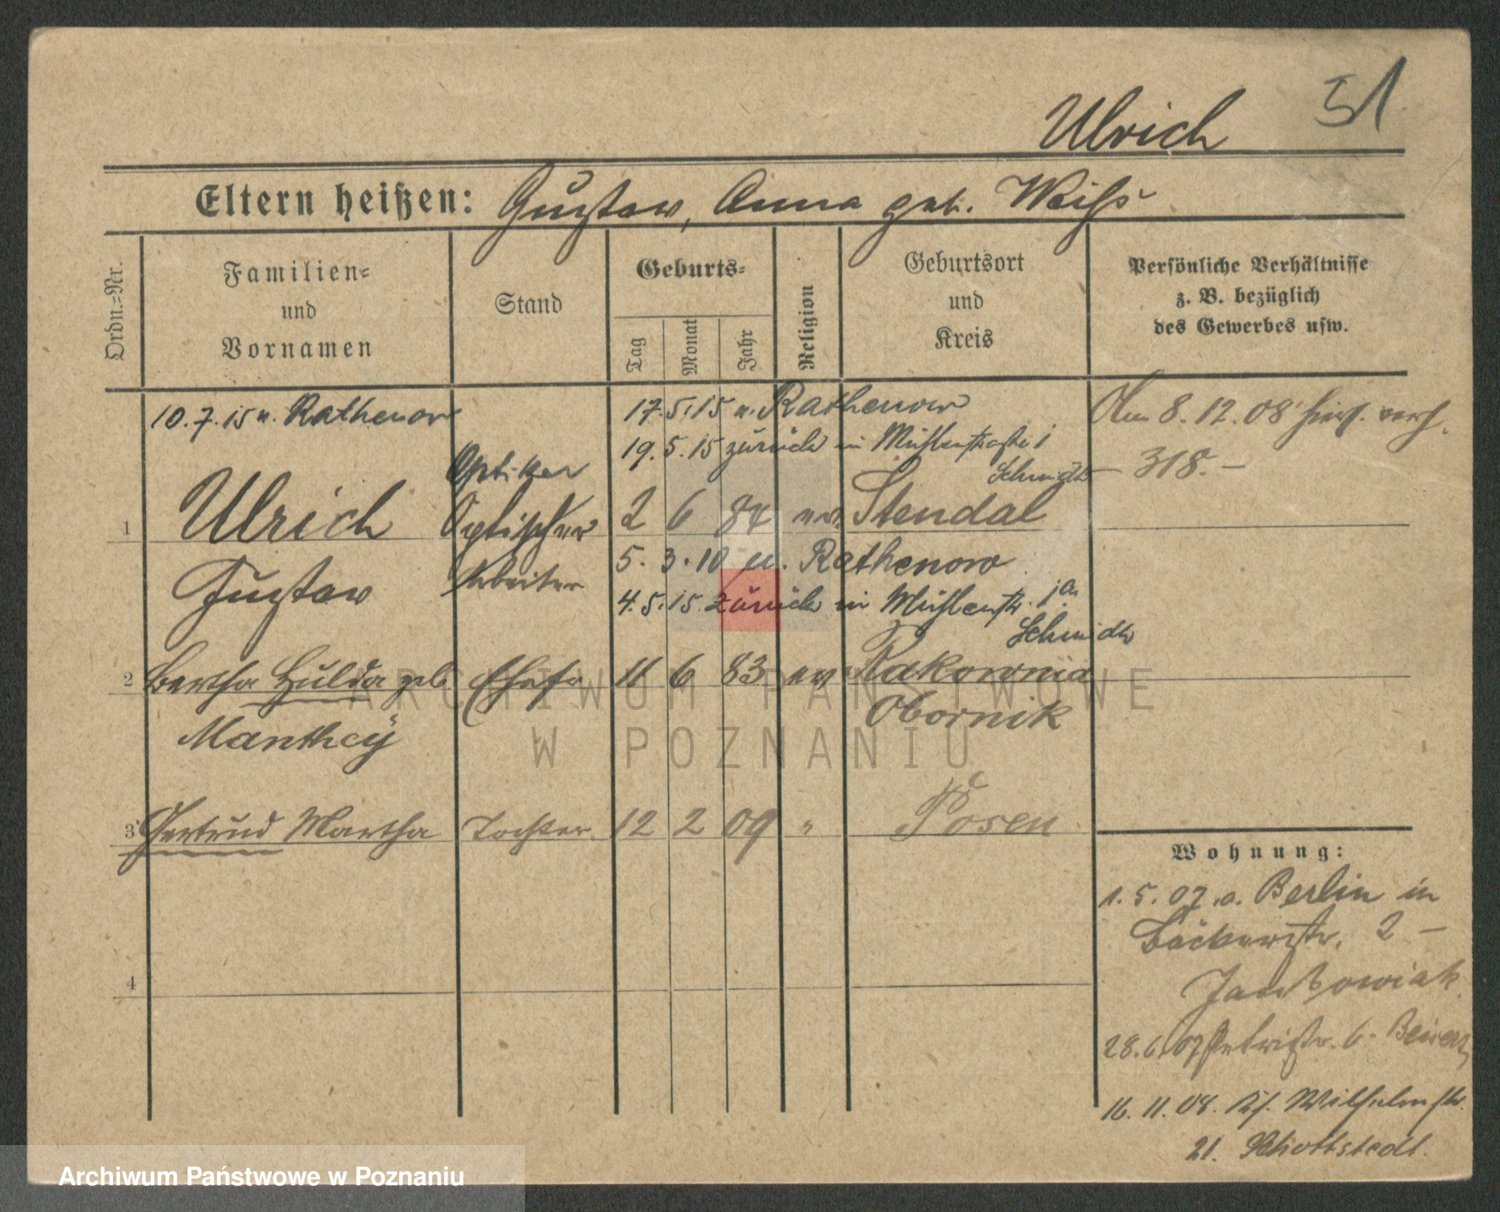 51
Ulrich
Eltern heißen: Gustav, Anna geb. Weiß
Ordn.-Nr.
Familien-
und
Vornamen
Stand
Geburts-
Tag
Monat
Jahr
Religion
Geburtsort
und
Kreis
Persönliche Verhältnisse
z. B. bezüglich
des Gewerbes usw.
10.7.15 n. Rathenow
17.5.15 n. Rathenow
Am 8.12.08 hies. verh.
19.5.15 zurück in Mühlenstraße
318.-
Optiker
1 Ulrich Optischer 2 6 84 ev. Stendal
Gustav Arbeiter
5.3.10 n. Rathenow
4.5.15 zurück in Mühlenstr. 1a
Schmidt
2 Bertha Hulda geb Ehefr 11 6 83 ev Rakownia
Manthey
Obornik
3 Gertrud Martha Tochter 12 2 09 " Posen
4
Wohnung:
1.5.07 a. Berlin in
Bäckerstr. 2 -
Jankowiak
28.6.07 Petristr. 6
16.11.08. Wilhelmstr.
21. Schottstedt.
ARCHIWUM PAŃSTWOWE
W POZNANIU
Archiwum Państwowe w Poznaniu